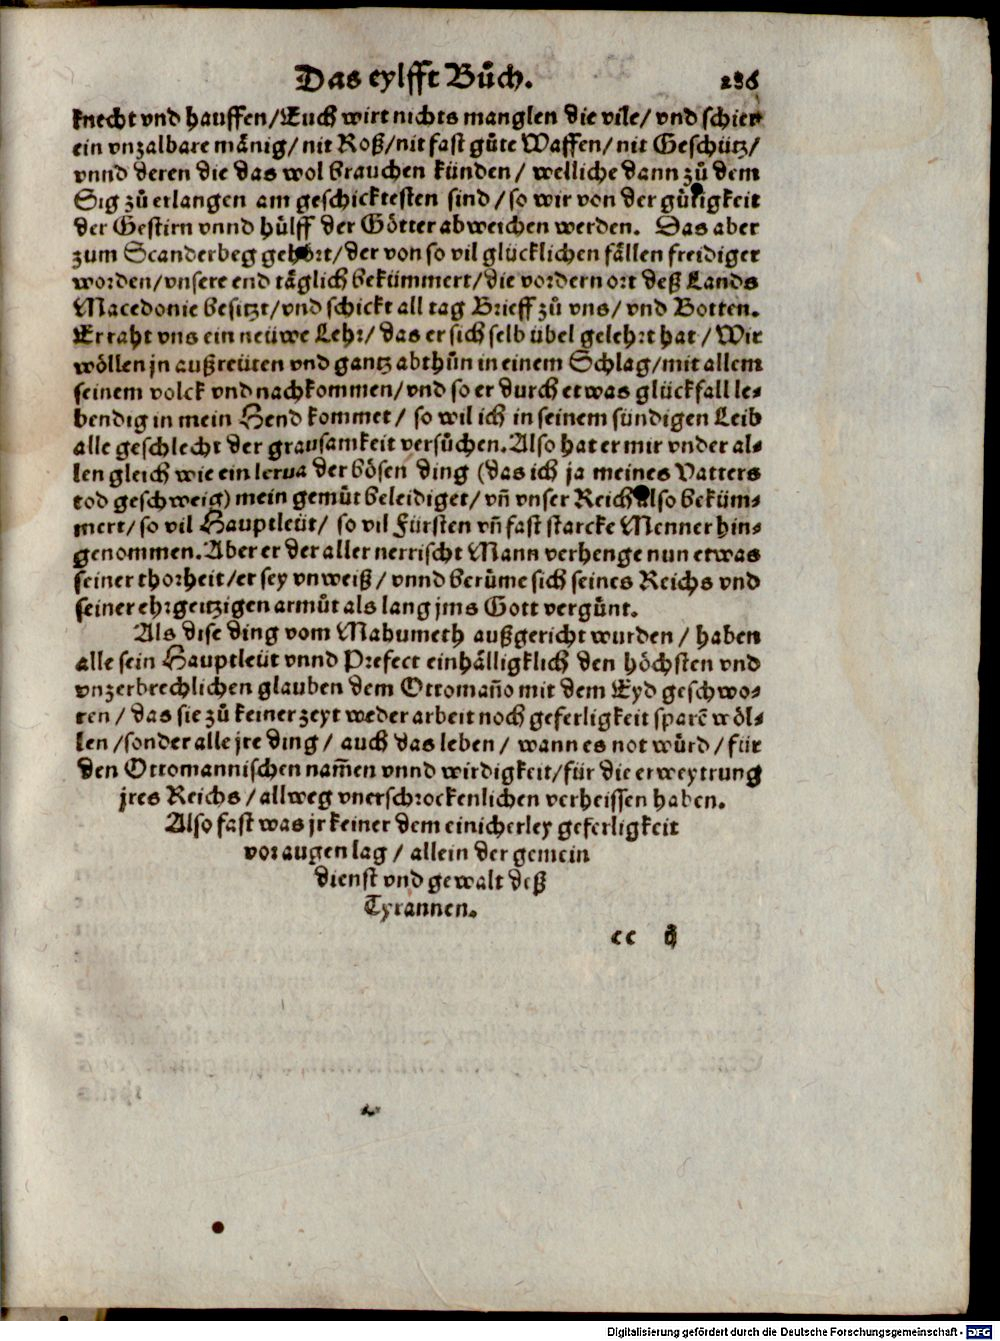 Das eylfft Bůch. 236
knecht vnd hauffen/Euch wirt nichts manglen die vile/ vnd schier
ein vnzalbare mänig/ nit Roß/nit fast gůte Waffen/ nit Geschütz/
vnnd deren die das wol brauchen künden/ welliche dann zů dem
Sig zů erlangen am geschicktesten sind/so wir von der gütigkeit
der Gestirn vnnd hülff der Götter abweichen werden. Das aber
zum Scanderbeg gehört/der von so vil glücklichen fällen freidiger
worden/vnsere end täglich bekümmert/die vordern ort deß Lands
Macedonie besitzt/vnd schickt all tag Brieff zů vns/ vnd Botten.
Er raht vns ein neüwe Lehr/ das er sich selb übel gelehrt hat/Wir
wöllen jn außreüten vnd gantz abthůn in einem Schlag/mit allem
seinem volck vnd nachkommen/vnd so er durch etwas glückfall le-
bendig in mein Hend kommet/ so wil ich in seinem sündigen Leib
alle geschlecht der grausamkeit versůchen. Also hat er mir vnder al-
len gleich wie ein lerua der bösen ding (das ich ja meines Vatters
tod geschweig) mein gemůt beleidiget/ vñ vnser Reich also beküm-
mert/ so vil Hauptleüt/ so vil Fürsten vñ fast starcke Menner hin-
genommen. Aber er der aller nerrischt Mann verhenge nun etwas
seiner thorheit/er sey vnweiß/ vnnd berůme sich seines Reichs vnd
seiner ehrgeitzigen armůt als lang jms Gott vergünt.
Als dise ding vom Mahumeth außgericht wurden/ haben
alle sein Hauptleüt vnnd Prefect einhälligklich den höchsten vnd
vnzerbrechlichen glauben dem Ottomaño mit dem Eyd geschwo-
ren/ das sie zů keiner zeyt weder arbeit noch geferligkeit sparẽ wöl-
len/sonder alle jre ding/ auch das leben/ wann es not würd/für
den Ottomannischen nam̃en vnnd wirdigkeit/für die erweytrung
jres Reichs/allweg vnerschrockenlichen verheissen haben.
Also fast was jr keiner dem einicherley geferligkeit
vor augen lag/ allein der gemein
dienst vnd gewalt deß
Tyrannen.
cc ij
Digitalisierung gefördert durch die Deutsche Forschungsgemeinschaft - DFG